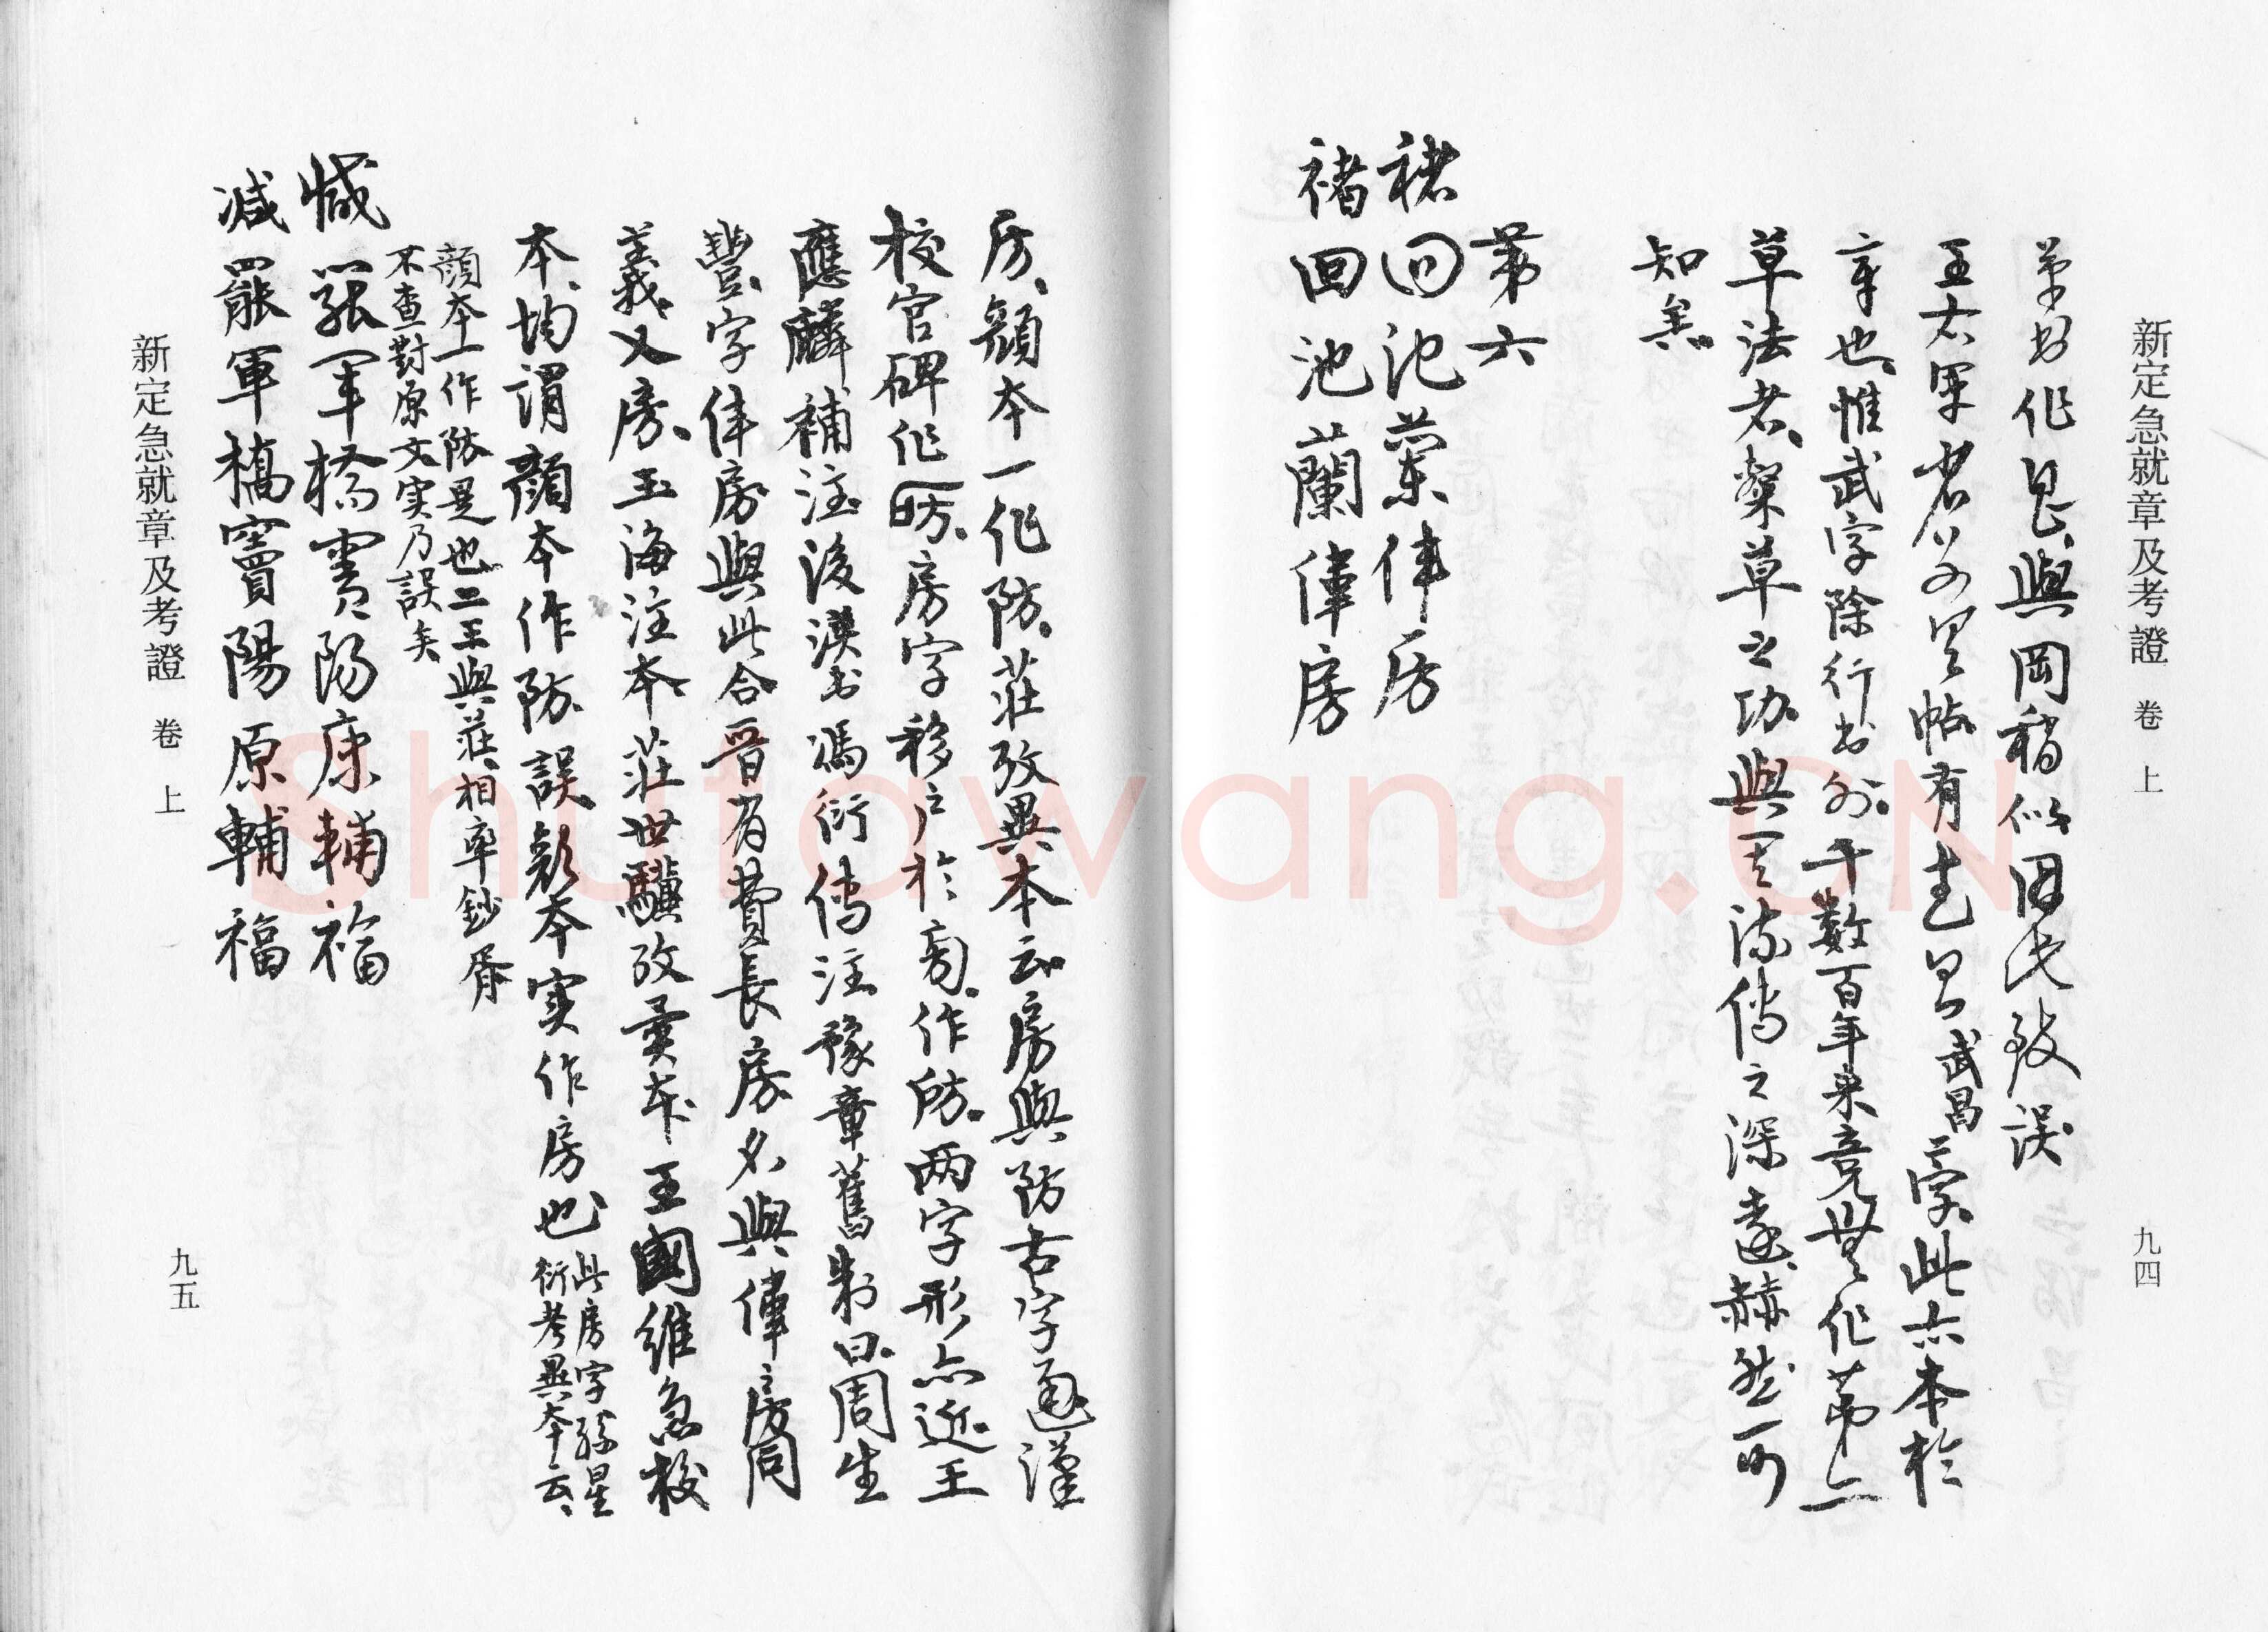 新定急就章及考證 卷上 九四
草书作見與岡稍似因此致誤
王右軍帖有武昌字此亦本於
章也惟武字除行书外千數百年来竟無作第二
草法者槼草之功與其流傳之深遠赫然可
知矣
第六
褚回池蘭偉房
褚回池蘭偉房
房顏本一作防莊攷異本云房與防古字通漢
校官碑作𣃚房字移户於旁作防两字形亦近王
應麟補注後漢书馮衍傳注豫章舊制曰周生
豐字偉房與此合晉有費長房名與偉房同
義又房玉海注本莊世驥攷異本王國維急校
本均謂顏本作防誤顏本实作房也此房字孫星
衍考異本云
顏本一作防是也二王與莊相率鈔胥
不查對原文实乃誤矣
减罷軍橋竇陽原輔福
减罷軍橋竇陽原輔福
新定急就章及考證 卷上 九五
Shufawang.CN